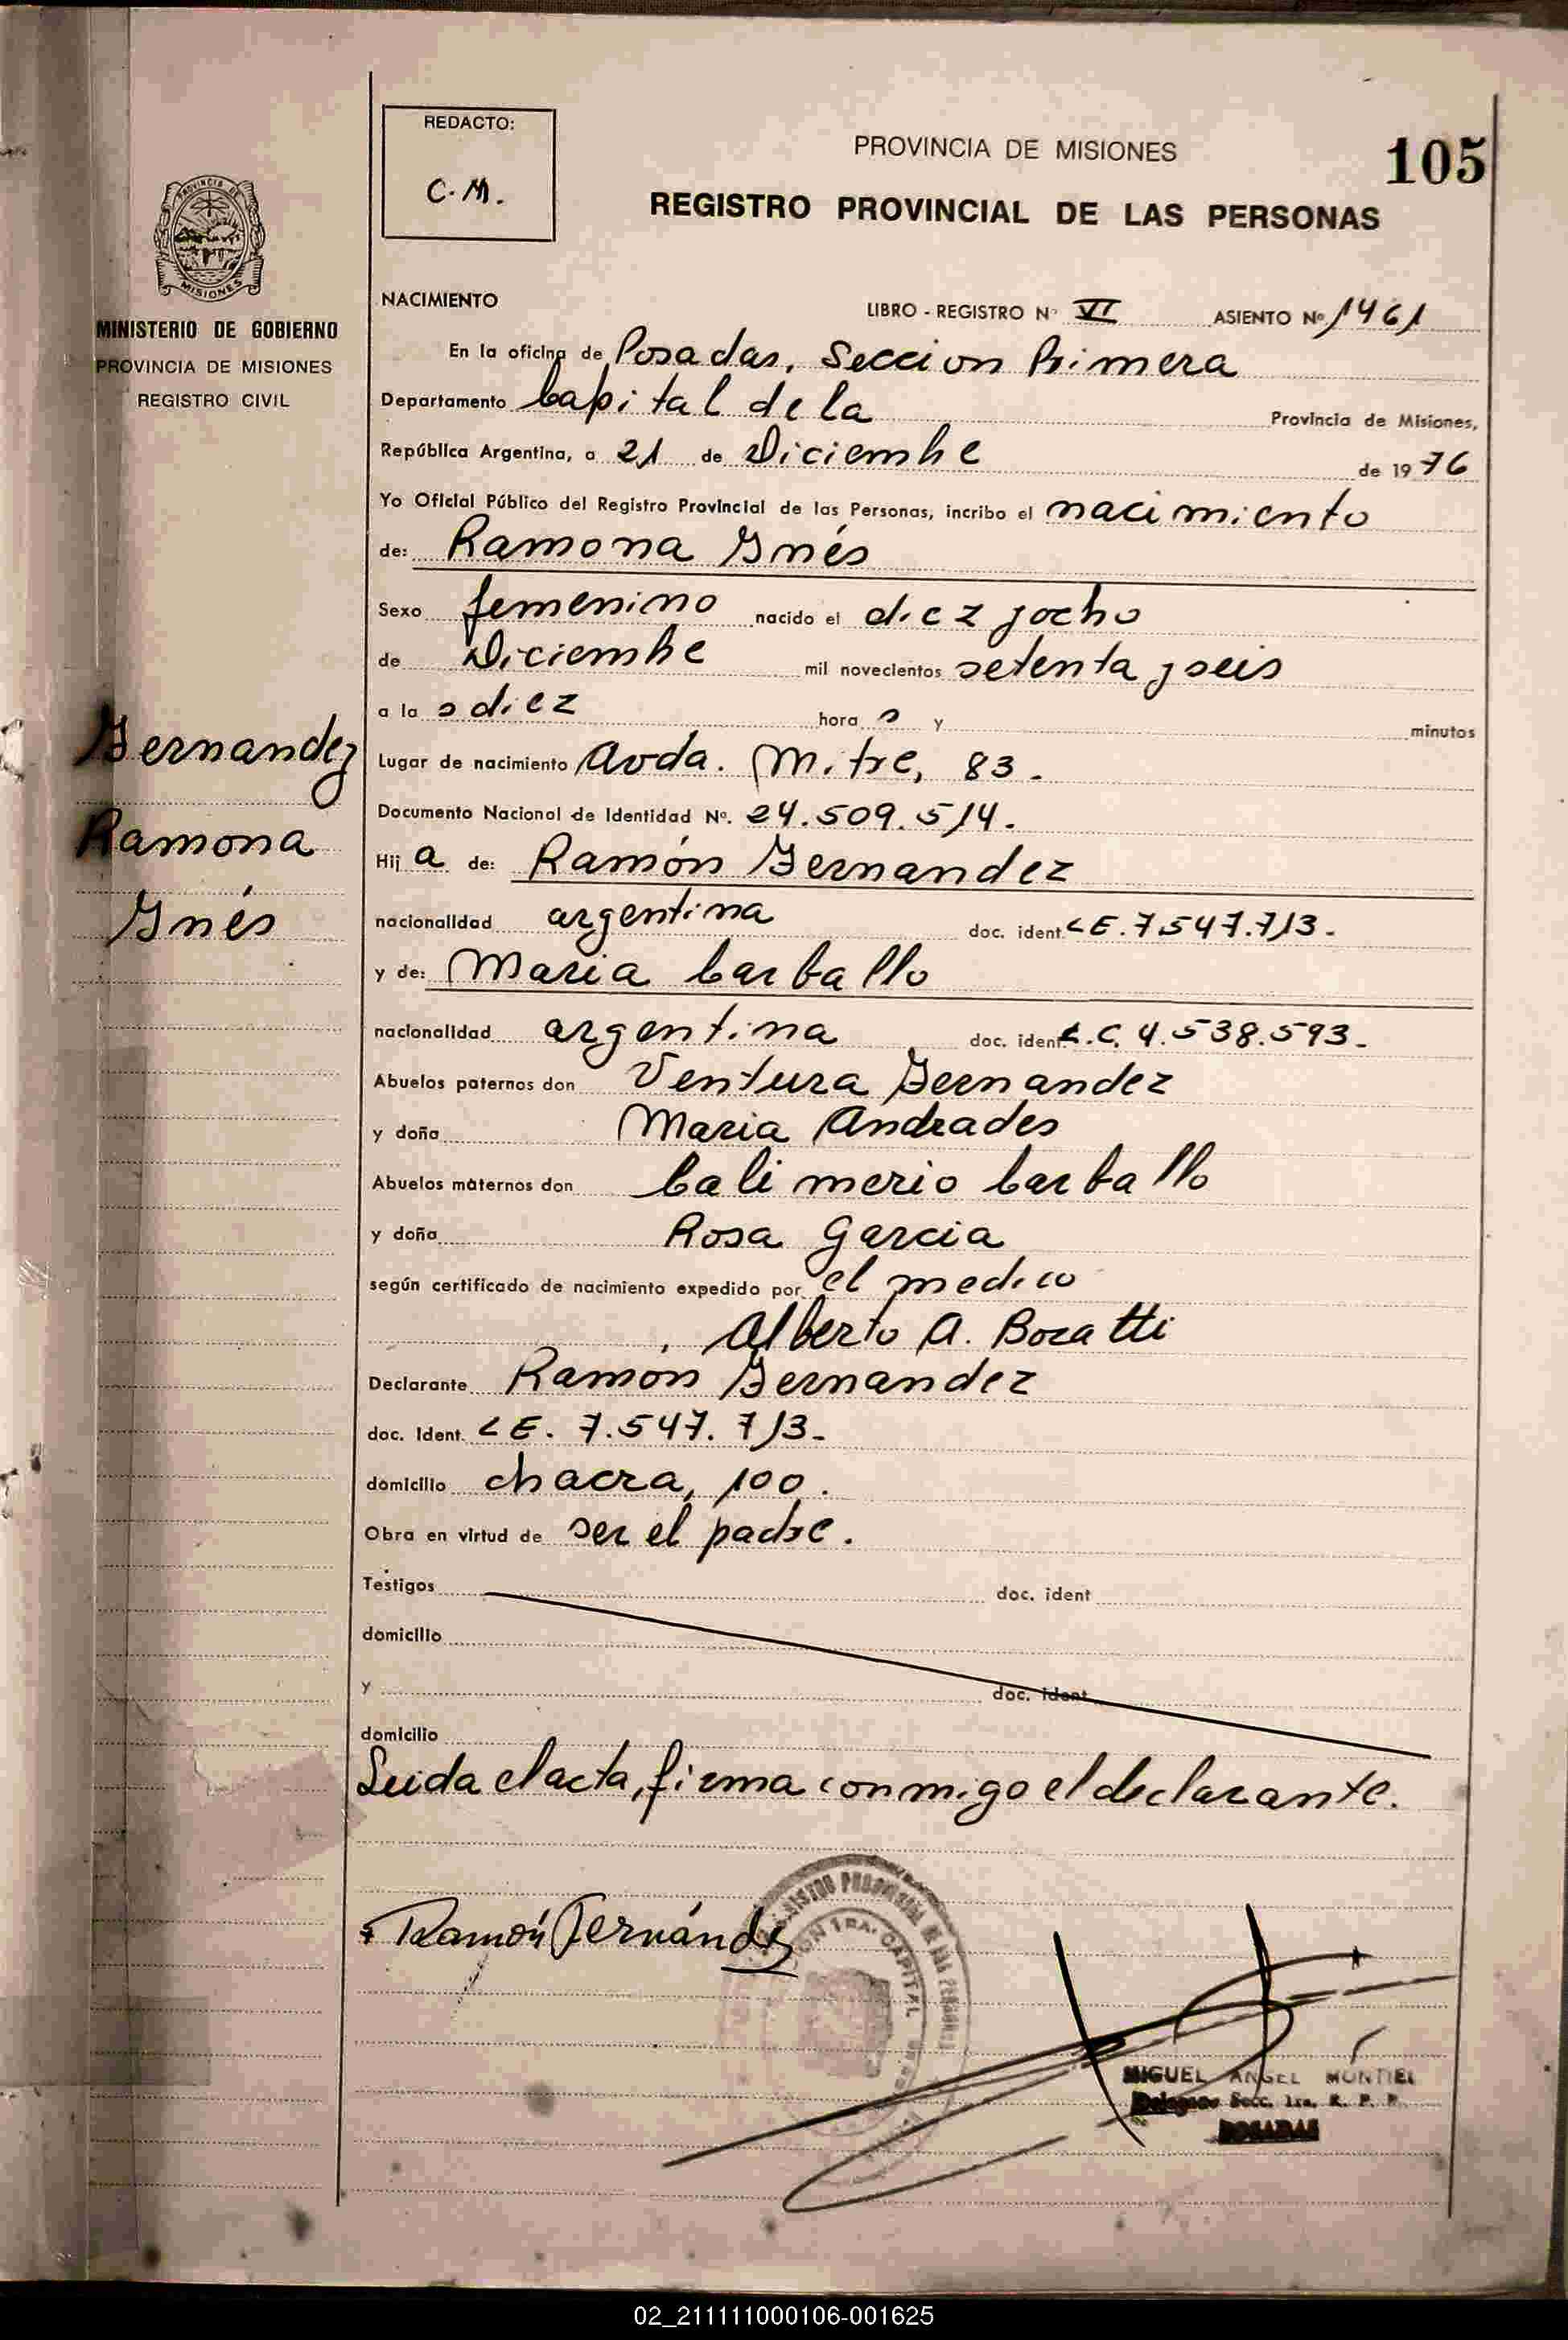 REDACTO:
C.M.
PROVINCIA DE MISIONES
105
REGISTRO PROVINCIAL DE LAS PERSONAS
MISIONES
MINISTERIO DE GOBIERNO
PROVINCIA DE MISIONES
REGISTRO CIVIL
Fernandez
Ramona
Inés
NACIMIENTO LIBRO - REGISTRO Nº VI ASIENTO Nº 1461
En la oficina de Posadas, Seccion Primera
Departamento Capital de la Provincia de Misiones,
República Argentina, a 21 de Diciembre de 1976
Yo Oficial Público del Registro Provincial de las Personas, incribo el nacimiento
de: Ramona Inés
Sexo femenino nacido el diez y ocho
de Diciembre mil novecientos setenta y seis
a la s diez hora s y minutos
Lugar de nacimiento Avda. Mitre, 83.
Documento Nacional de Identidad Nº. 24.509.514.
Hij a de: Ramón Fernandez
nacionalidad argentina doc. ident. LE. 7.547.713.
y de: Maria Carballo
nacionalidad argentina doc. ident. L.C. 4.538.593.
Abuelos paternos don Ventura Fernandez
y doña Maria Andrades
Abuelos maternos don Calimerio Carballo
y doña Rosa Garcia
según certificado de nacimiento expedido por el medico
Alberto A. Bozatti
Declarante Ramón Fernandez
doc. Ident. LE. 7.547.713.
domicilio chacra, 100.
Obra en virtud de ser el padre.
Testigos doc. ident
domicilio
y doc. ident
domicilio
Leida el acta, firma conmigo el declarante.
Ramón Fernández
MIGUEL ANGEL MONTIEL
Delegado Secc. 1ra. R. P. P.
POSADAS
02_211111000106-001625